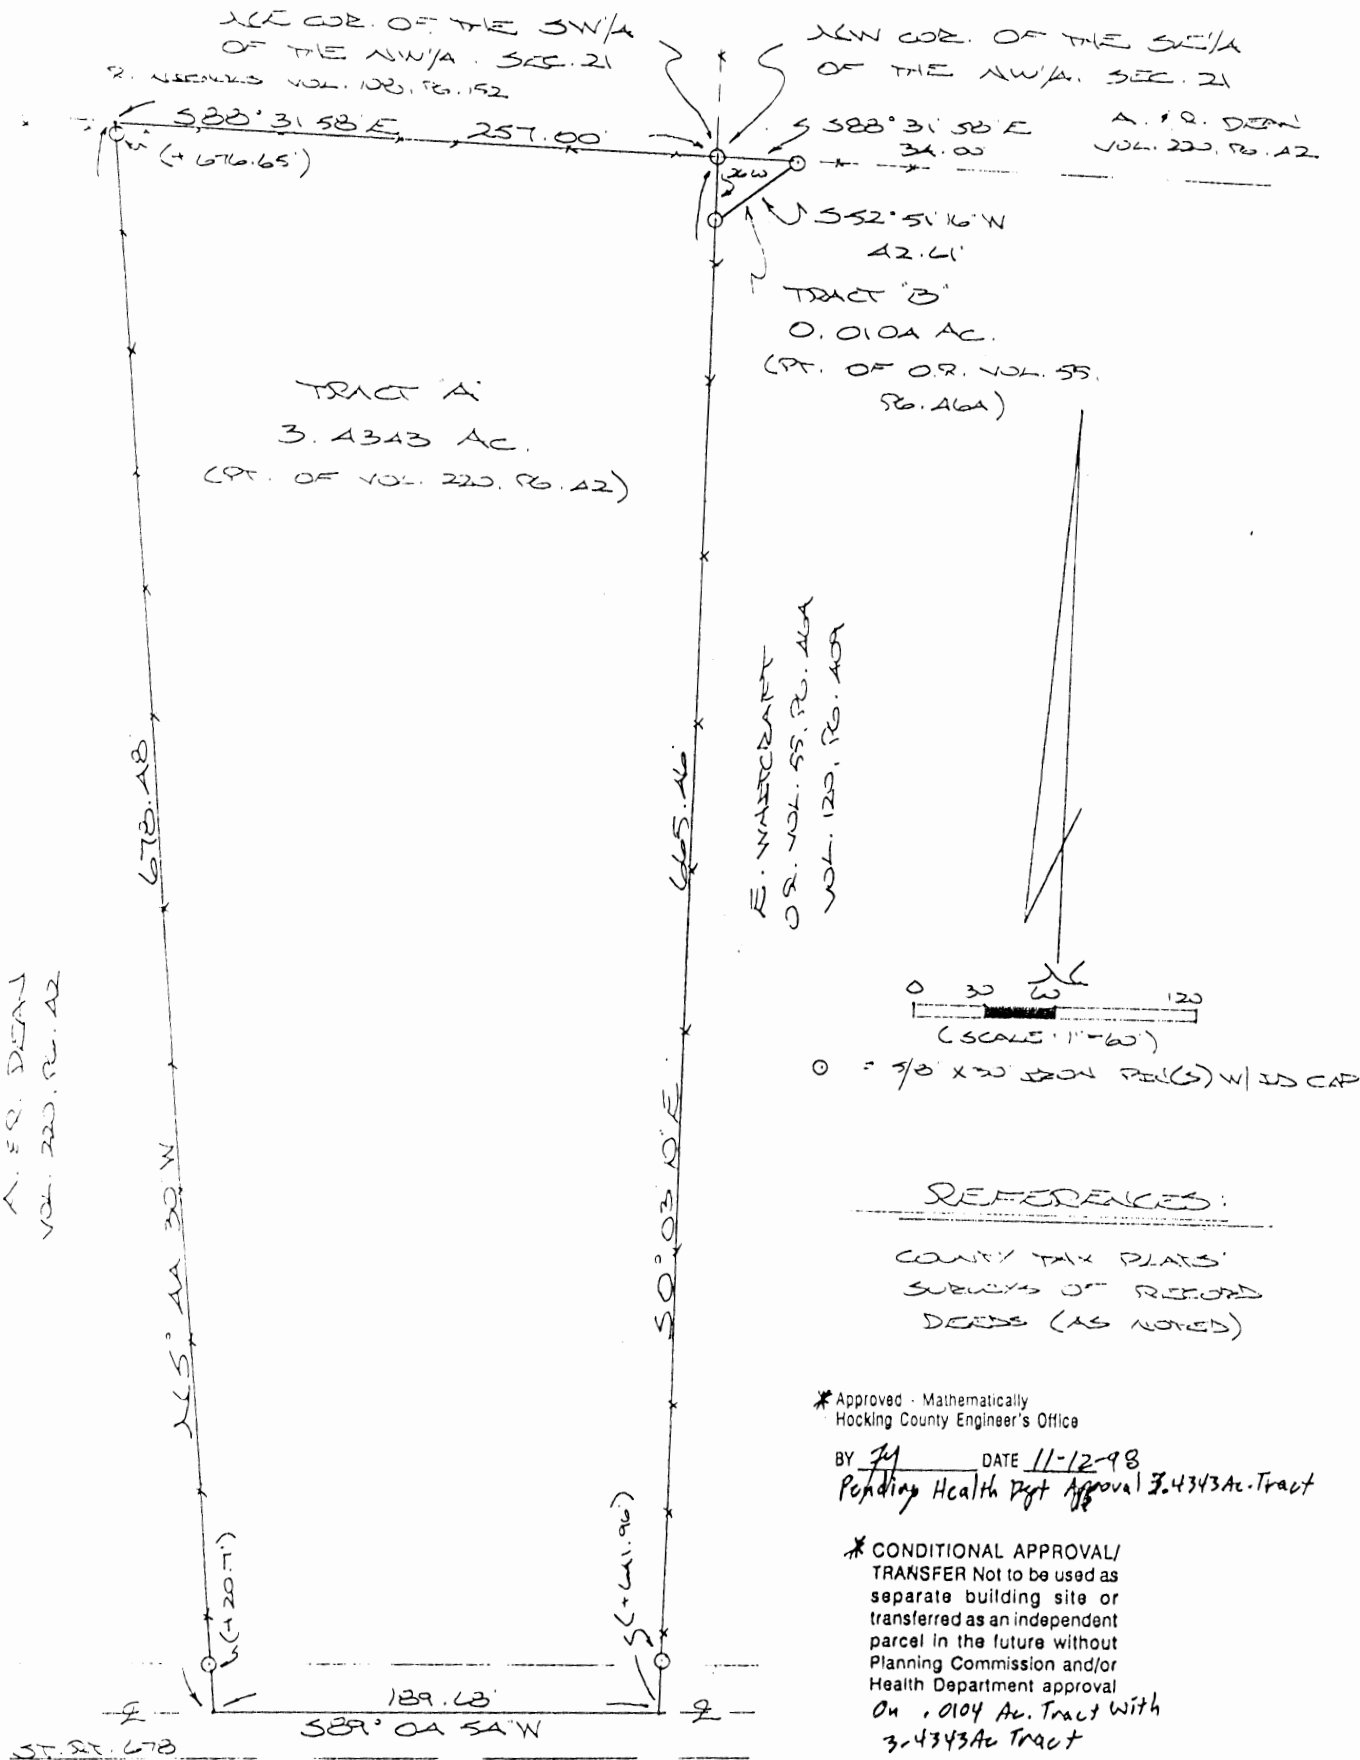 NE COR. OF THE SW1/4
OF THE NW1/4. SEC. 21
NW COR. OF THE SE1/4
OF THE NW1/4. SEC. 21
VOL. 108, PG. 152
S88° 31' 58" E 257.00'
(+676.65')
S88° 31' 58" E
34.00
A. & R. DEAN
VOL. 220, PG. 42
S52° 51' 16" W
42.61'
TRACT "B"
0.0104 AC.
(PT. OF O.R. VOL. 55,
PG. 464)
TRACT "A"
3.4343 AC.
(PT. OF VOL. 220, PG. 42)
678.48'
N5° 44' 30" W
665.46'
S0° 03' 10" E
E. WHITCRAFT
O.R. VOL. 55, PG. 464
VOL. 120, PG. 409
A. & R. DEAN
VOL. 220, PG. 42
N
0 30 60 120
(SCALE: 1"=60')
= 5/8" X 30" IRON PIN(S) W/ ID CAP
REFERENCES:
COUNTY TAX PLATS
SURVEYS OF RECORD
DEEDS (AS NOTED)
* Approved - Mathematically
Hocking County Engineer's Office
BY DATE 11-12-98
Pending Health Dept Approval 3.4343 Ac. Tract
* CONDITIONAL APPROVAL/
TRANSFER Not to be used as
separate building site or
transferred as an independent
parcel in the future without
Planning Commission and/or
Health Department approval
On .0104 Ac. Tract With
3.4343 Ac Tract
(+20.7')
(+641.96')
189.68'
S89° 04' 54" W
ST. RT. 678